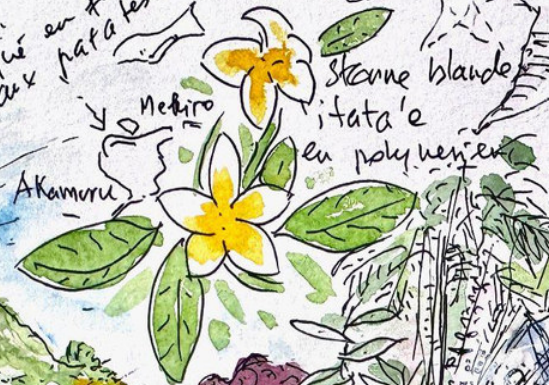 en
aux patates
Mekiro
Akamaru
Sterne blanche
itata'e
en polynésien